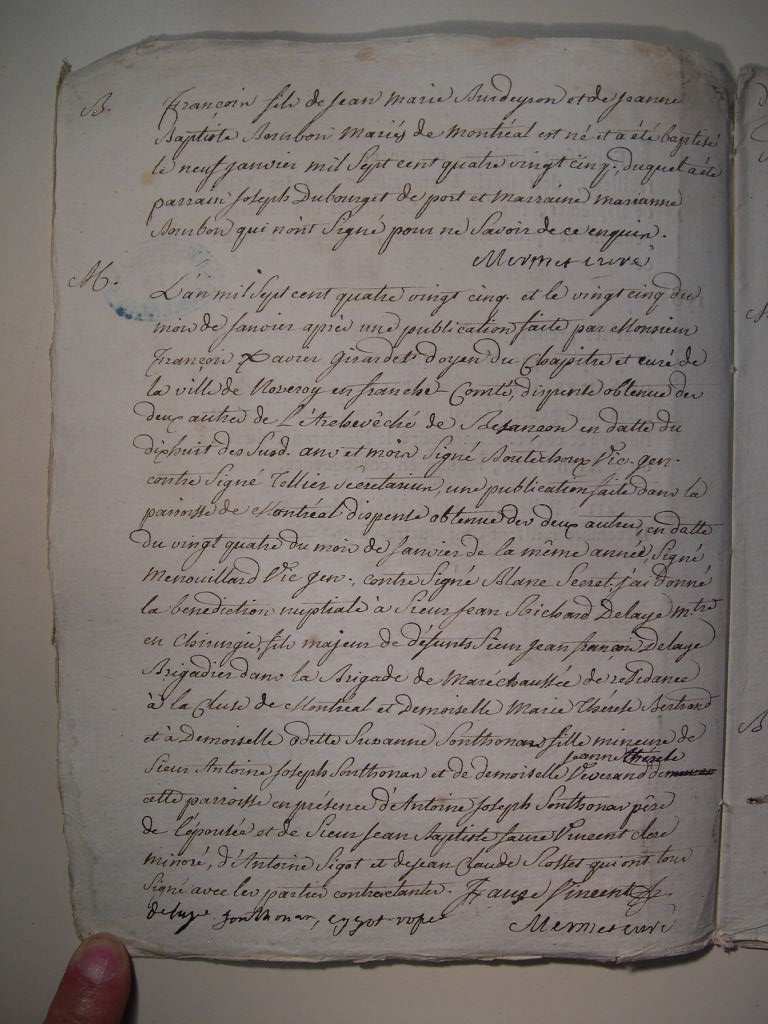 B. François fils de Jean Marie Burdeyron et de Jeanne
Baptiste Bourbon mariés de Montréal est né et a été baptisé
le neuf janvier mil Sept cent quatre vingt cinq, duquel a été
parrain Joseph Dubourget de port et marraine marianne
Bourbon qui n'ont Signé pour ne Savoir de ce enquis.
Mermet curé
M. L'an mil Sept cent quatre vingt cinq. et le vingt cinq du
mois de Janvier après une publication faite par Monsieur
François Xavier Girardet doyen du Chapitre et curé de
la ville de Noseroy en franche-Comté, dispense obtenue des
deux autres de L'Archevêché de Besançon en datte du
dixhuit des Susd. ans et mois Signé Boutechoux Vic. gen.
contre Signé Tellier Sécretarius, une publication faite dans la
paroisse de Montréal dispense obtenue des deux autres, en datte
du vingt quatre du mois de Janvier de la même année, Signé
menouillard Vic gen., contre Signé Blanc Secret. j'ai donné
la bénédiction nuptiale à Sieur Jean Richard Delaye mtre
en Chirurgie, fils majeur de défunts Sieur Jean françois Delaye
Brigadier dans la Brigade de Maréchaussée de residance
à la Cluse de Montréal et Demoiselle Marie Therese Bertrand
et à Demoiselle odette Suzanne Sonthonax fille mineure de
jeanne therese
Sieur Antoine Joseph Sonthonax et de demoiselle Reverand de
cette parroisse en présence d'Antoine Joseph Sonthonax père
de l'épousée et de Sieur Jean Baptiste faure Vincent clerc
minoré, d'Antoine Sigot et de Jean Claude Rosset qui ont tous
Signé avec les parties contractantes. Faure Vincent
delaye Sonthonax,
Mermet curé